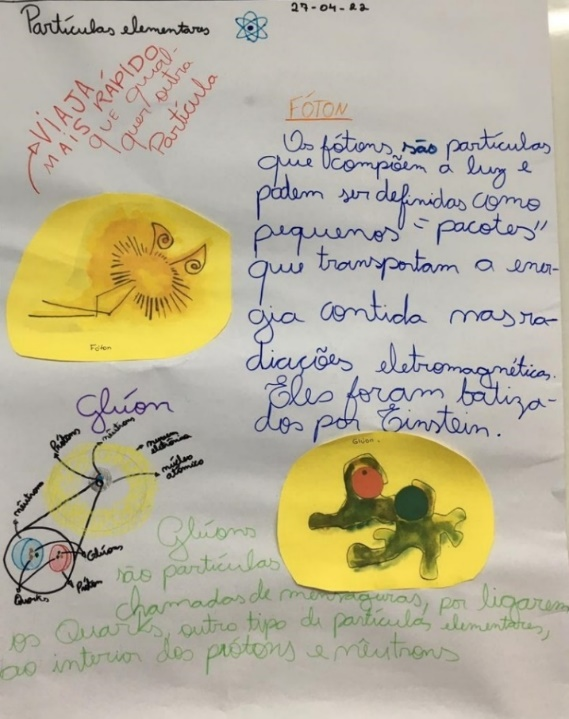 Partículas elementares
27-04-22
VIAJA
MAIS RÁPIDO
que qual-
quer outra
Partícula
FÓTON
Os fótons são partículas
que compõem a luz e
podem ser definidas como
pequenos "pacotes"
que transportam a ener-
gia contida nas ra-
diações eletromagnéticas.
Eles foram batiza-
dos por Einstein.
Fóton
Glúon
Prótons
nêutrons
nuvem
eletrônica
núcleo
atômico
nêutrons
Glúons
Quarks
Próton
Glúon.
Glúons
são partículas
chamadas de mensageiras, por ligarem
os Quarks, outro tipo de partículas elementares,
ao interior dos prótons e nêutrons